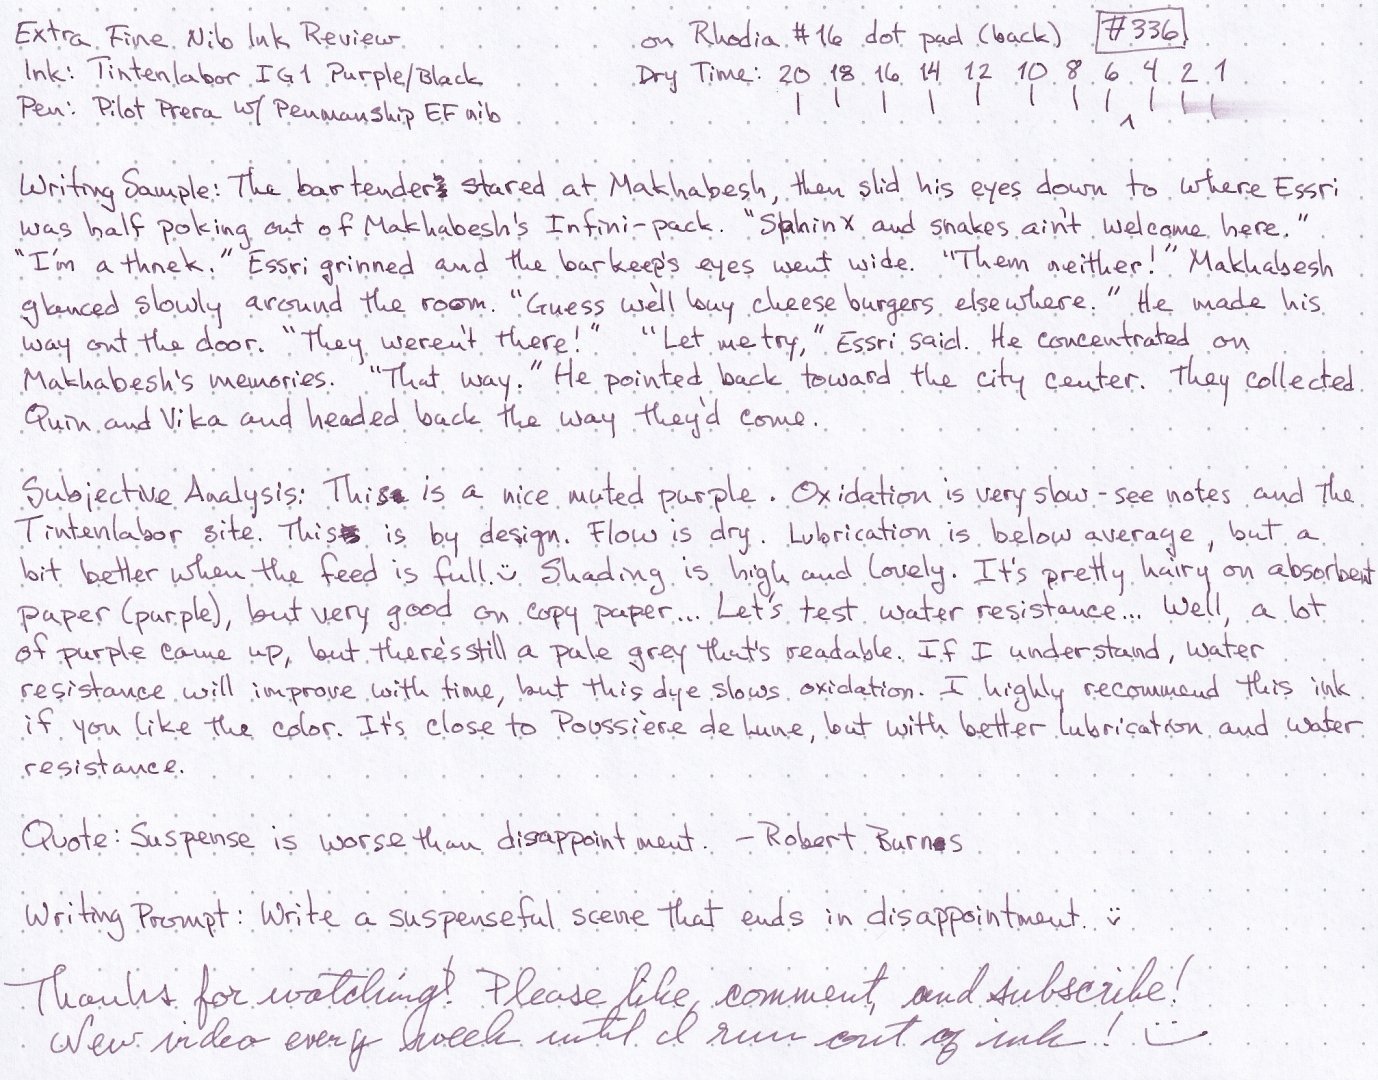 Extra Fine Nib Ink Review on Rhodia #16 dot pad (back) #336
Ink: Tintenlabor IG1 Purple/Black Dry Time: 20 18 16 14 12 10 8 6 4 2 1
Pen: Pilot Prera w/ Penmanship EF nib
1
Writing Sample: The bartender stared at Makhabesh, then slid his eyes down to where Essri
was half poking out of Makhabesh's Infini-pack. "Sphinx and snakes ain't welcome here."
"I'm a thnek." Essri grinned and the barkeep's eyes went wide. "Them neither!" Makhabesh
glanced slowly around the room. "Guess we'll buy cheeseburgers elsewhere." He made his
way out the door. "They weren't there!" "Let me try," Essri said. He concentrated on
Makhabesh's memories. "That way." He pointed back toward the city center. They collected
Quin and Vika and headed back the way they'd come.
Subjective Analysis: This is a nice muted purple. Oxidation is very slow - see notes and the
Tintenlabor site. This is by design. Flow is dry. Lubrication is below average, but a
bit better when the feed is full. Shading is high and lovely. It's pretty hairy on absorbent
paper (purple), but very good on copy paper... Let's test water resistance... Well, a lot
of purple came up, but there's still a pale grey that's readable. If I understand, water
resistance will improve with time, but this dye slows oxidation. I highly recommend this ink
if you like the color. It's close to Poussière de Lune, but with better lubrication and water
resistance.
Quote: Suspense is worse than disappointment. - Robert Burns
Writing Prompt: Write a suspenseful scene that ends in disappointment.
Thanks for watching! Please like, comment, and subscribe!
New video every week until I run out of ink!